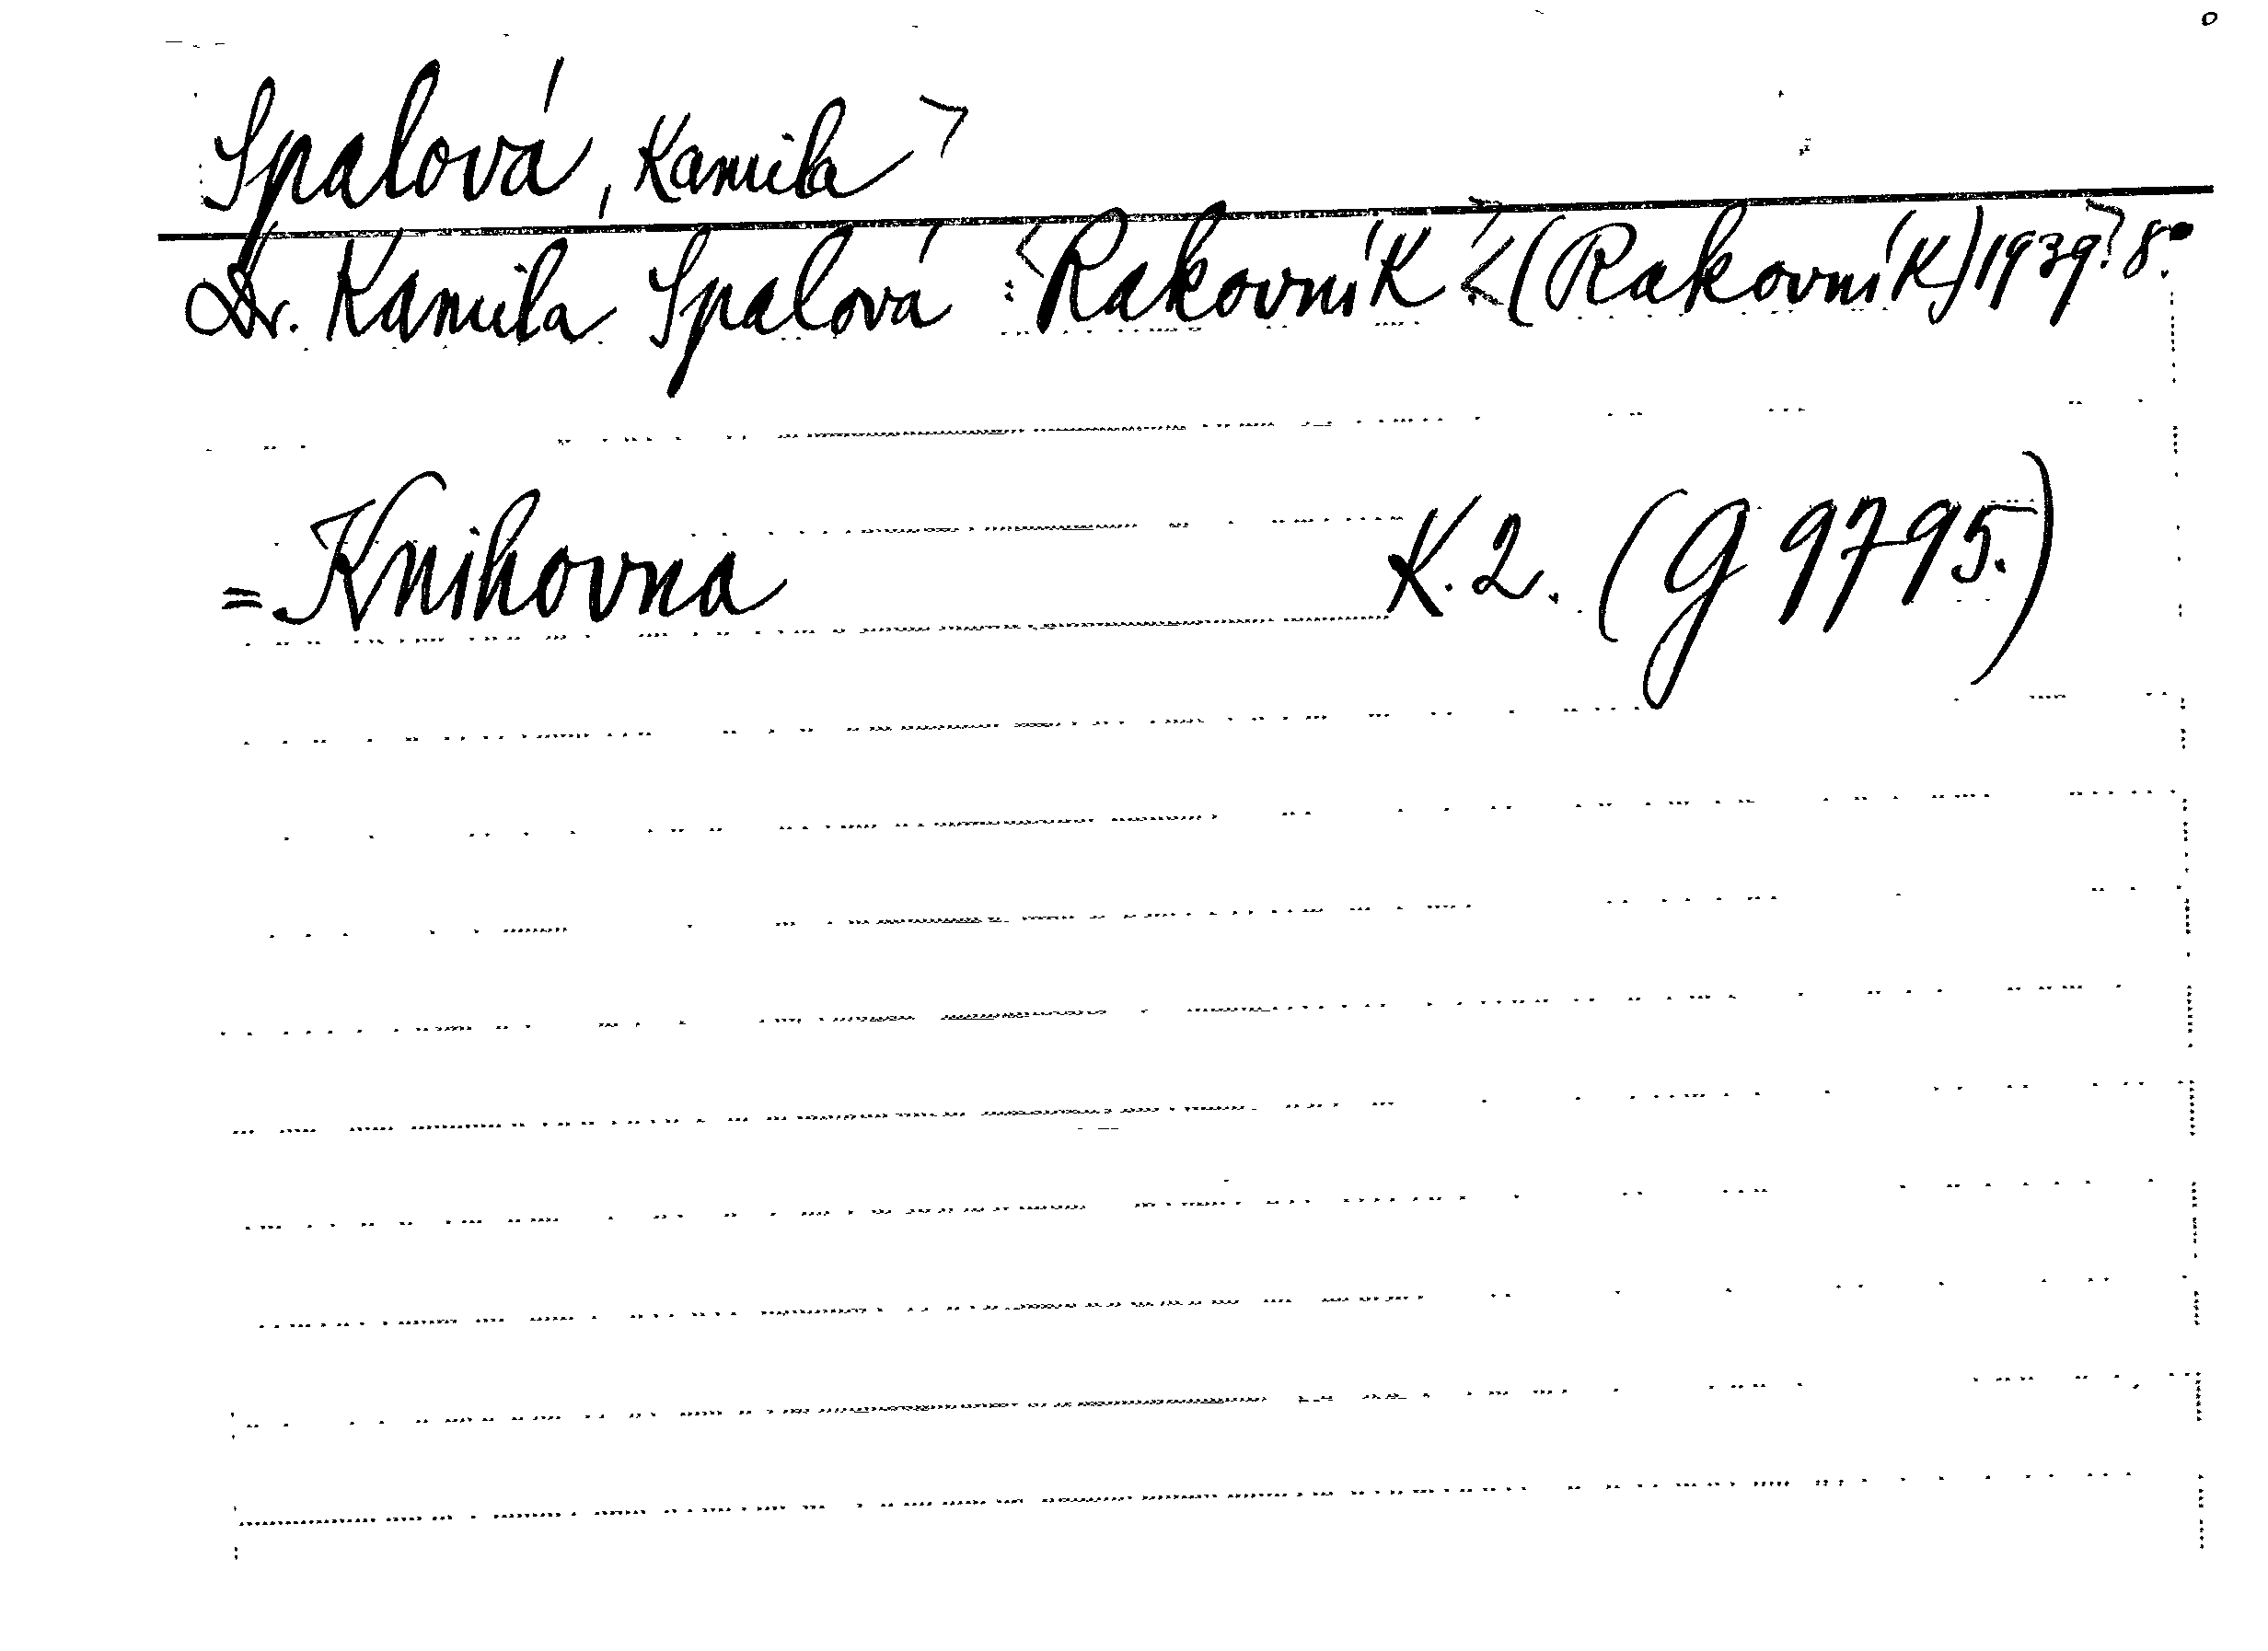 Spalová, Kamila >
Dr. Kamila Spalová : <Rakovník> <(Rakovník) 1939>. 8°.
= Knihovna K. 2. (G 9795.)